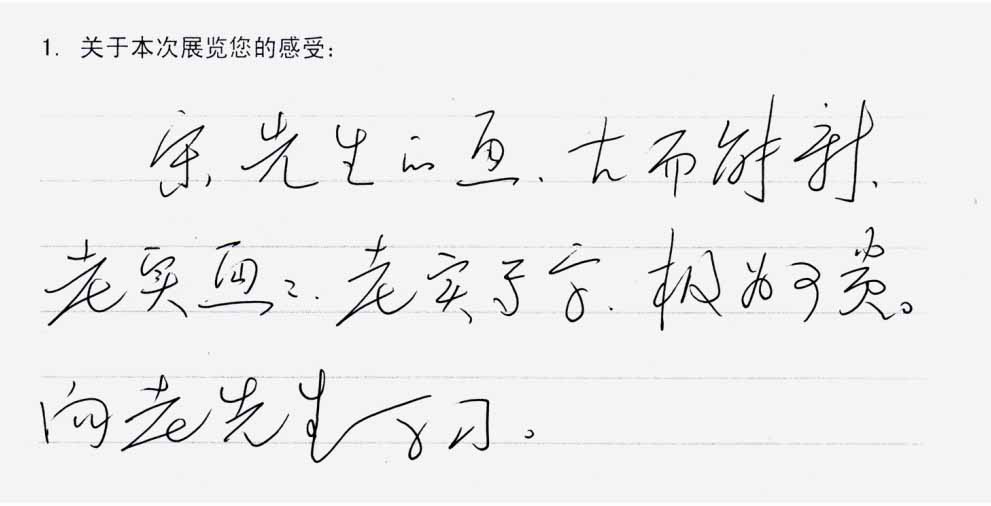 1. 关于本次展览您的感受：
宋先生的画、古而能新、
老实画画、老实写字、极为可贵。
向老先生学习。